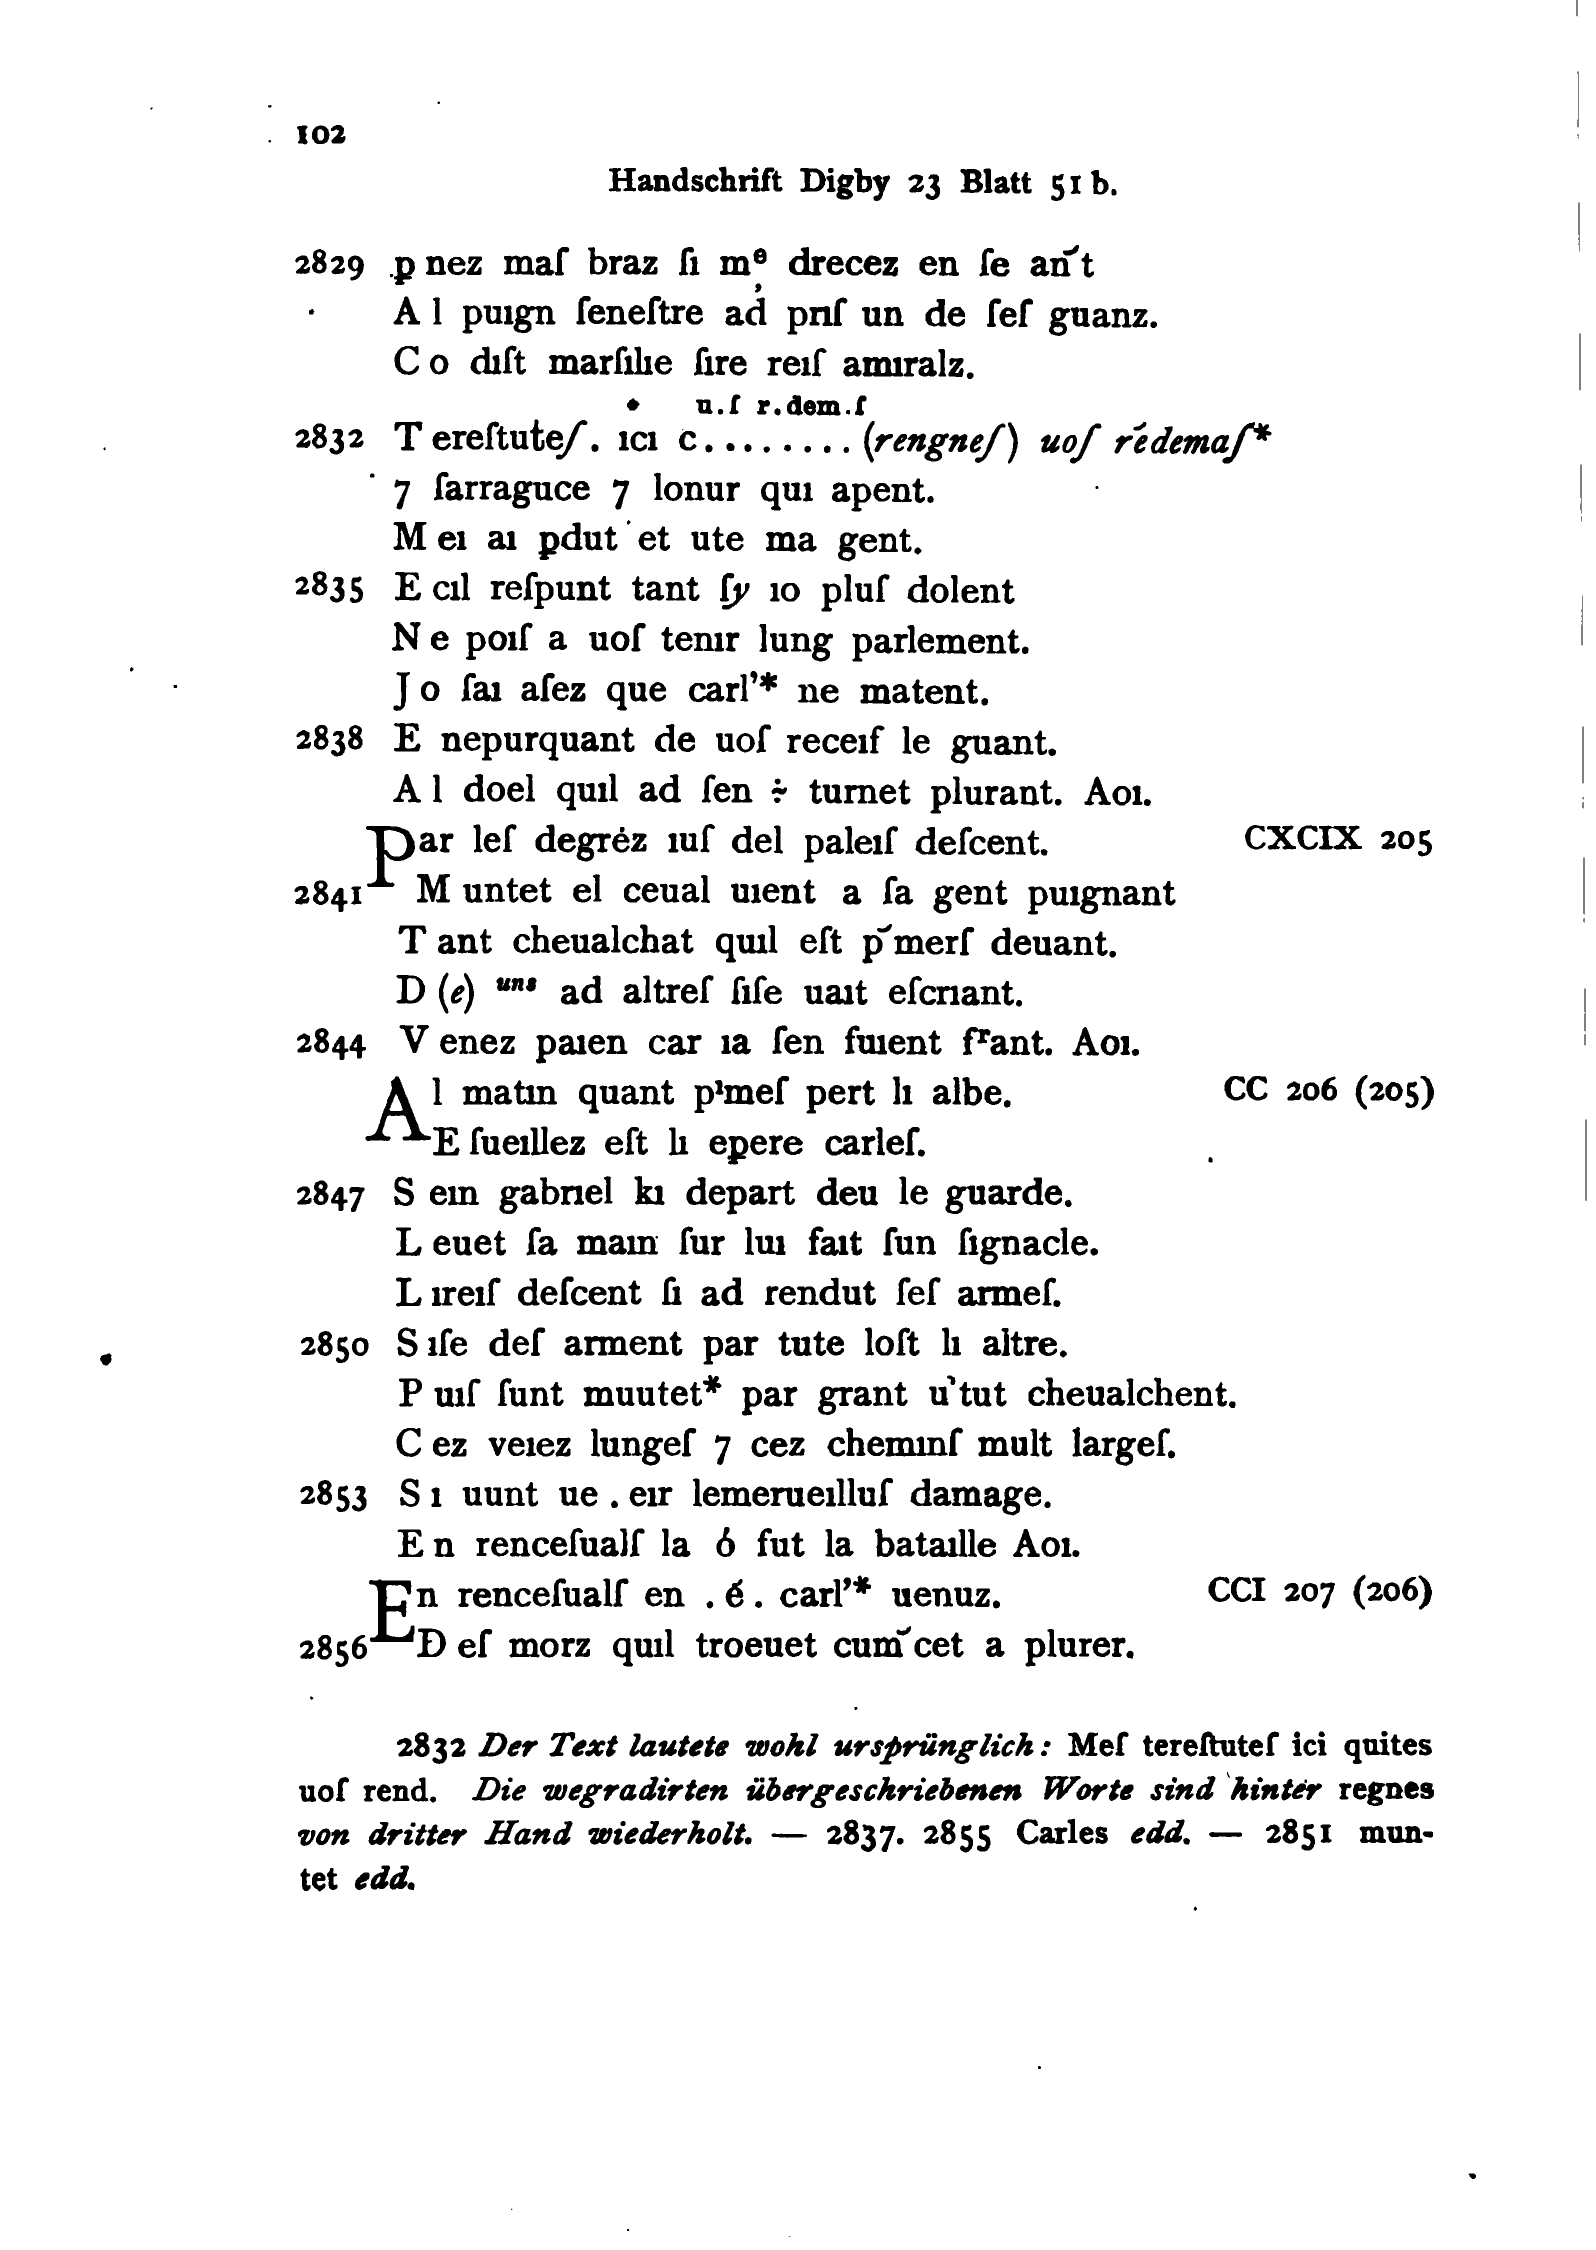 102
Handschrift Digby 23 Blatt 51 b.
2829 p nez maſ braz ſı mᵉ drecez en ſe an̄t
A l puıgn ſeneſtre ad prıſ un de ſeſ guanz.
C o dıſt marſılıe ſıre reıſ amıralz.
u.ſ r.dem.ſ
2832 T ereſtuteſ. ıcı c........(rengneſ) uoſ rédemaſ*
7 ſarraguce 7 lonur quı apent.
M eı aı pdut et ute ma gent.
2835 E cıl reſpunt tant ſy ıo pluſ dolent
N e poıſ a uoſ tenır lung parlement.
J o ſaı aſez que carl’* ne matent.
2838 E nepurquant de uoſ receıſ le guant.
A l doel quıl ad ſen ÷ turnet plurant. Aoı.
Par leſ degréz ıuſ del paleıſ deſcent. CXCIX 205
2841 M untet el ceual uıent a ſa gent puıgnant
T ant cheualchat quıl eſt p̄merſ deuant.
D (e) uns ad altreſ ſıſe uaıt eſcrıant.
2844 V enez paıen car ıa ſen fuıent fʳant. Aoı.
A l matın quant pımeſ pert lı albe. CC 206 (205)
E ſueıllez eſt lı epere carleſ.
2847 S eın gabrıel kı depart deu le guarde.
L euet ſa maın ſur luı faıt ſun ſıgnacle.
L ıreıſ deſcent ſı ad rendut ſeſ armeſ.
2850 S ıſe deſ arment par tute loſt lı altre.
P uıſ ſunt muutet* par grant u’tut cheualchent.
C ez veıez lungeſ 7 cez chemınſ mult largeſ.
2853 S ı uunt ue . eır lemerueılluſ damage.
E n renceſualſ la ó fut la bataılle Aoı.
En renceſualſ en . é . carl’* uenuz. CCI 207 (206)
2856 D eſ morz quıl troeuet cum̄cet a plurer.
2832 Der Text lautete wohl ursprünglich: Meſ tereſtuteſ ici quites
uoſ rend. Die wegradirten übergeschriebenen Worte sind hinter regnes
von dritter Hand wiederholt. — 2837. 2855 Carles edd. — 2851 mun-
tet edd.